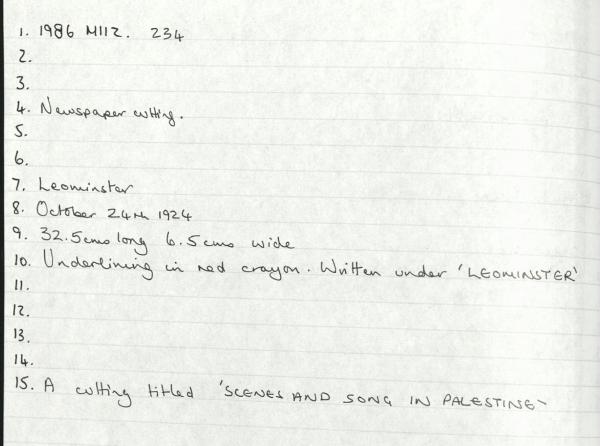 1. 1986 M112. 234
2.
3.
4. Newspaper cutting.
5.
6.
7. Leominster
8. October 24th 1924
9. 32.5cms long 6.5cms wide
10. Underlining in red crayon. Written under 'LEOMINSTER'
11.
12.
13.
14.
15. A cutting titled 'SCENES AND SONG IN PALESTINE'